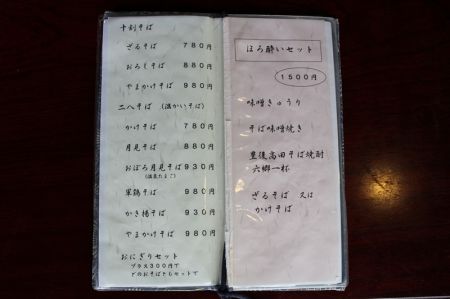 十割そば
ざるそば 780円
おろしそば 880円
やまかけそば 980円
二八そば (温かいそば)
かけそば 780円
月見そば 880円
おぼろ月見そば 930円
(温泉たまご)
軍鶏そば 980円
かき揚そば 930円
やまかけそば 980円
おにぎりセット
プラス300円で
どのおそばともセットで
ほろ酔いセット
1500円
味噌きゅうり
そば味噌焼き
豊後高田そば焼酎
六郷一杯
ざるそば 又は
かけそば